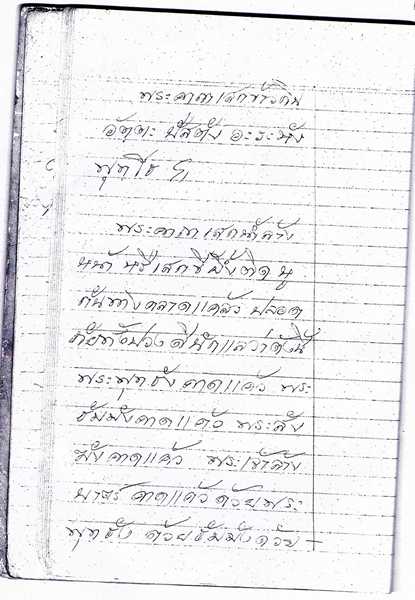 พระคาถาเสกข้าวกิน
อัตตะ ปัสตัง อะระหัง
พุทโธ ฯ
พระคาถาเสกน้ำล้าง
หน้า หรือเสกขี้ผึ้งก็ดี
กันทางคลาดแคล้ว ปลอด
ภัยทั้งปวง ดีนักแลว่าดังนี้
พระพุทธังคาดแค้ว พระ
ธัมมังคาดแค้ว พระสัง
ฆังคาดแค้ว พระเจ้าล้าง
บาตร์ คาดแค้วด้วยพระ
พุทธัง ด้วยธัมมังด้วย –